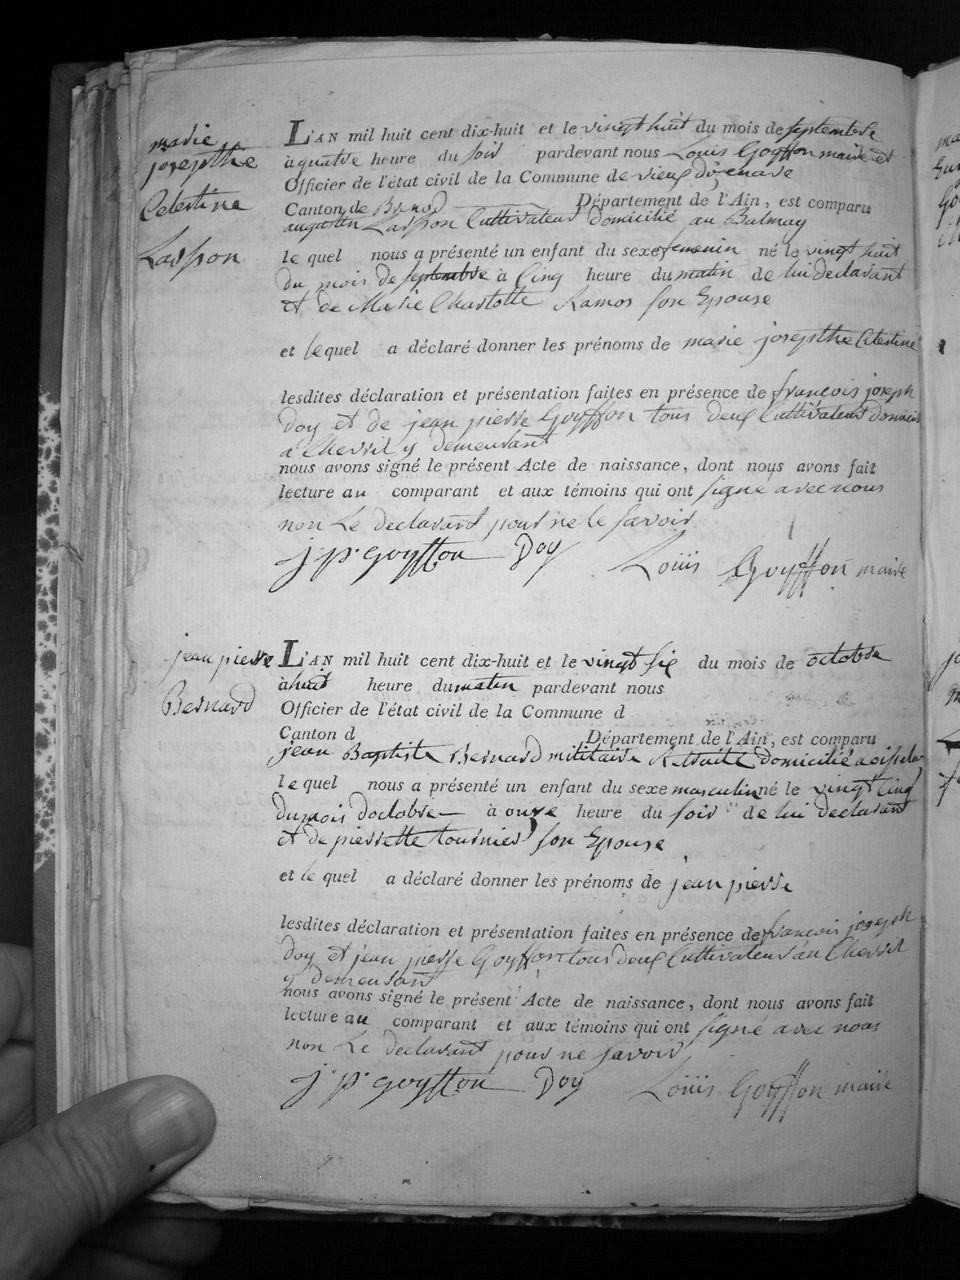 marie
josepthe
Celestine
Lasson
L'AN mil huit cent dix-huit et le vingt huit du mois de septembre
à quatre heure du soir pardevant nous Louis Goyffon maire et
Officier de l'état civil de la Commune de vieux d'izenave
Canton de Brnod Département de l'Ain, est comparu
augustin Lasson Cultivateur domicilié au Balmay
le quel nous a présenté un enfant du sexe femenin né le vingt huit
du mois de septembre à Cinq heure du matin de lui declarant
et de Marie Charlotte Ramos son Epouse
et le quel a déclaré donner les prénoms de marie josepthe Celestine
lesdites déclaration et présentation faites en présence de françois joseph
Doy et de jean pierre Goyffon tous deux Cultivateurs
a Chevril y demeurant
nous avons signé le présent Acte de naissance, dont nous avons fait
lecture au comparant et aux témoins qui ont signé avec nous
non Le declarant pour ne le savoir
j p. Goyffon Doy Loüis Goyffon maire
jean pierre
Bernard
L'AN mil huit cent dix-huit et le vingt six du mois de octobre
à huit heure du matin pardevant nous
Officier de l'état civil de la Commune d
Canton d Département de l'Ain, est comparu
jean Baptiste Bernard militaire Retraité domicilié a
le quel nous a présenté un enfant du sexe masculin né le vingt Cinq
du mois doctobre à onze heure du soir de lui declarant
et de pierrette tournier son Epouse
et le quel a déclaré donner les prénoms de jean pierre
lesdites déclaration et présentation faites en présence de françois joseph
Doy et jean pierre Goyffon tous deux Cultivateurs au Chevril
y demeurant
nous avons signé le présent Acte de naissance, dont nous avons fait
lecture au comparant et aux témoins qui ont signé avec nous
non Le declarant pour ne savoir
j p. goyffon Doy Loüis Goyffon maire